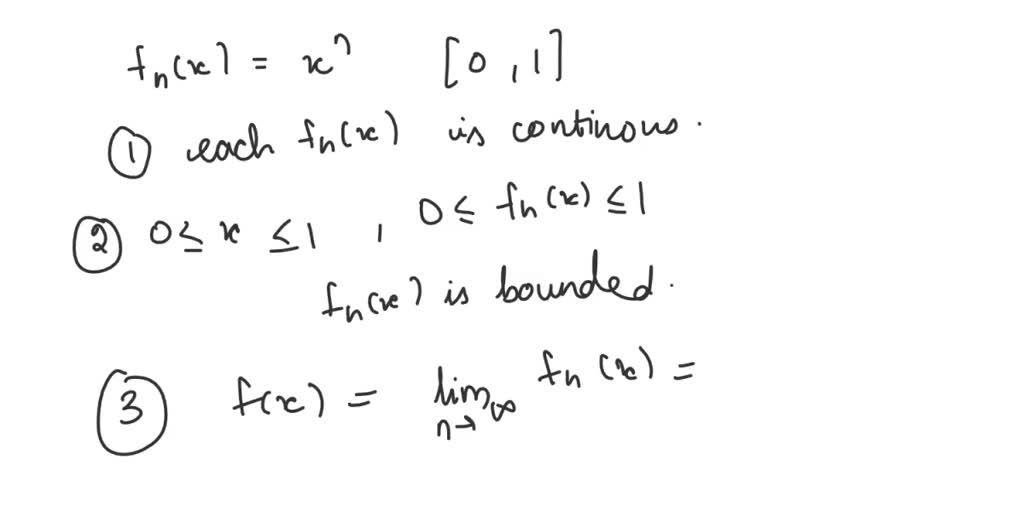 fn(x) = xⁿ [0, 1]
① each fn(x) is continous.
② 0 ≤ x ≤ 1 , 0 ≤ fn(x) ≤ 1
fn(x) is bounded.
③ f(x) = lim n→∞ fn(x) =